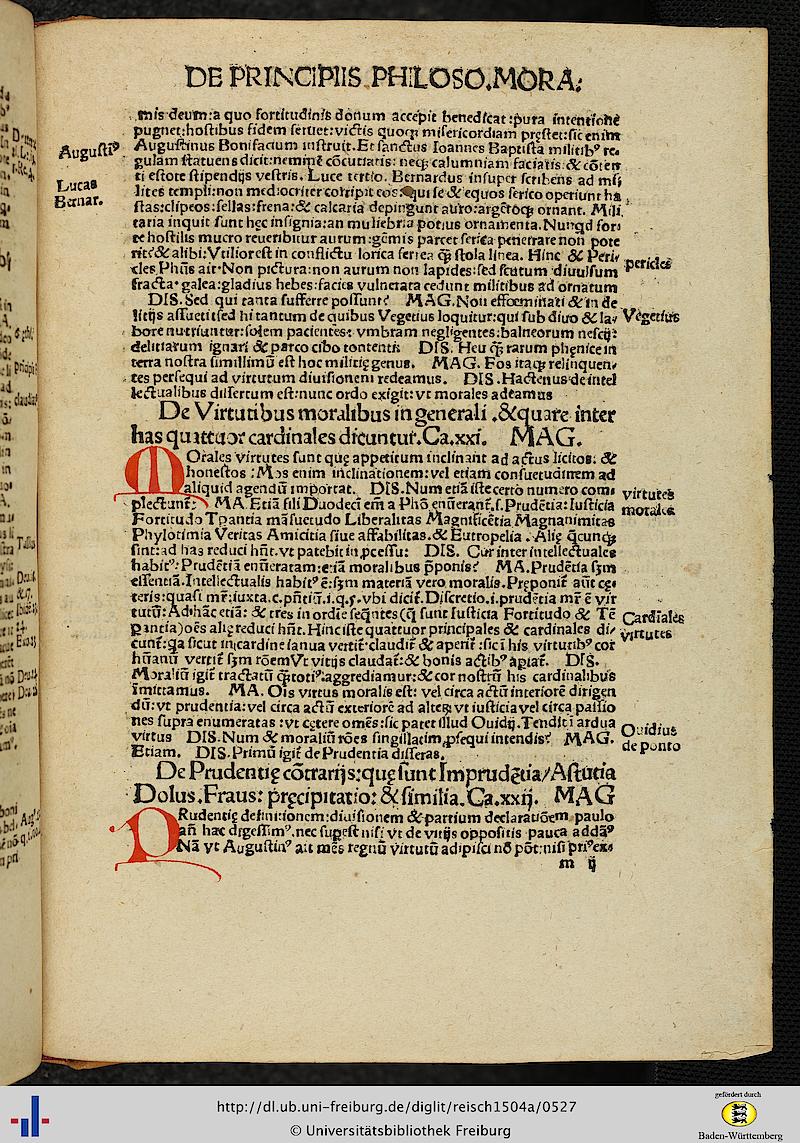 DE PRINCIPIIS PHILOSO.MORA:
mis deum:a quo fortitudinis donum accepit benedicat:pura intentionẽ
pugnet:hostibus fidem seruet:victis quoqꝫ misericordiam pręstet:sic enim
Augustinus Bonifacium instruit.Et sanctus Ioannes Baptista militibꝰ re.
Augustiꝰ
gulam statuens dicit:neminẽ cõcutiatis: neqꝫ calumniam faciatis:& cõten
ti estote stipendijs vestris. Luce tertio. Bernardus insuper scribens ad mi
Lucas
lites templi:non mediocriter corripit eos:qui se & equos serico operiunt ha
Bernar.
stas:clipeos:sellas:frena:& calcaria depingunt auro:argẽtoqꝫ ornant. Mili
taria inquit sunt hęc insignia:an muliebria potius ornamenta.Nunqd for
te hostilis mucro reueribitur aurum:gẽmis parcet serica penetrare non pote
rit?& alibi:Vtilior est in conflictu lorica ferrea qꝫ stola linea. Hinc & Peri
cles Phũs ait.Non pictura:non aurum non lapides:sed scutum diuulsum
pericles
fracta galea:gladius hebes:facies vulnerata cedunt militibus ad ornatum
DIS.Sed qui tanta sufferre possunt? MAG.Non effoeminati & in de
litijs assueti:sed hi tantum de quibus Vegetius loquitur:qui sub diuo & la/
Vegetius
bore nutriuntur:solem pacientes: vmbram negligentes:balneorum nescij:
delitiarum ignari & parco cibo contenti: DIS. Heu qꝫ rarum phęnice in
terra nostra simillimũ est hoc militię genus. MAG. Eos itaqꝫ relinquen/
tes persequi ad virtutum diuisionem redeamus. DIS.Hactenus de intel
lectualibus dissertum est:nunc ordo exigit:vt morales adeamus
De Virtutibus moralibus in generali .& quare inter
has quattuor cardinales dicuntur.Ca.xxi. MAG.
MOrales virtutes sunt quę appetitum inclinant ad actus licitos: &
honestos :Mos enim inclinationem:vel etiam consuetudinem ad
aliquid agendũ importat. DIS.Num etiã iste certo numero com
virtutes
plectunt? MA.Etiã fili Duodeci em a Phõ enũerant.s.Prudẽtia:Iusticia
morales
Fortitudo Tpantia mãsuetudo Liberalitas Magnificẽtia Magnanimitas
Phylotimia Veritas Amicitia siue affabilitas.& Eutropelia . Alię qcunqꝫ
sint:ad has reduci hñt.vt patebit in pcessu: DIS. Cur inter intellectuales
habitꝰ:Prudẽtiã enũeratam:etiã moralibus pponis? MA.Prudẽtia scdm
essentiã.Intellectualis habitꝰ ẽ:scdm materiã vero moralis.Preponit aũt cę
teris:quasi mr̃:iuxta.c.pñtiũ.i.q.5.vbi dicit.Discretio.i.prudẽtia mr̃ ẽ vir
tutũ:Ad hãc etiã: & tres in ordĩe seqñtes(q sunt Iusticia Fortitudo & Tẽ
Cardĩales
pantia)oẽs alię reduci hñt.Hinc iste quattuor principales & cardinales di/
virtutes
cunt:qa sicut in cardine ianua vertit:claudit & aperit:sic i his virtutibꝰ cor
hũanũ vertit scdm rõem Vt vitijs claudat:& bonis actibꝰ apiat. DIS.
Moraliũ igit tractatũ qtotiꝰ:aggrediamur:& cor nostrũ his cardinalibus
imittamus. MA. Ois virtus moralis est: vel circa actũ interiorẽ dirigen
dũ: vt prudentia: vel circa actũ exteriorẽ ad alterũ vt iusticia vel circa passio
nes supra enumeratas :vt cętere omẽs:sic patet illud Ouidij.Tendit i ardua
Ouidius
virtus DIS.Num & moraliũ rões singillatim psequi intendis? MAG.
de ponto
Etiam. DIS.Primũ igit de Prudentia disseras.
De Prudentię cõtrarijs:quę sunt Imprudẽtia/Astutia
Dolus.Fraus: pręcipitatio: & similia.Ca.xxij. MAG
PRudentię definitionem:diuisionem & partium declaratiõem paulo
añ hac digessimꝰ.nec supest nisi vt de vitijs oppositis pauca addaꝰ
Nã vt Augustinꝰ ait mẽs regnũ virtutũ adipisci nõ põt:nisi priꝰ ex
m ij
http://dl.ub.uni-freiburg.de/diglit/reisch1504a/0527
© Universitätsbibliothek Freiburg
gefördert durch
Baden-Württemberg